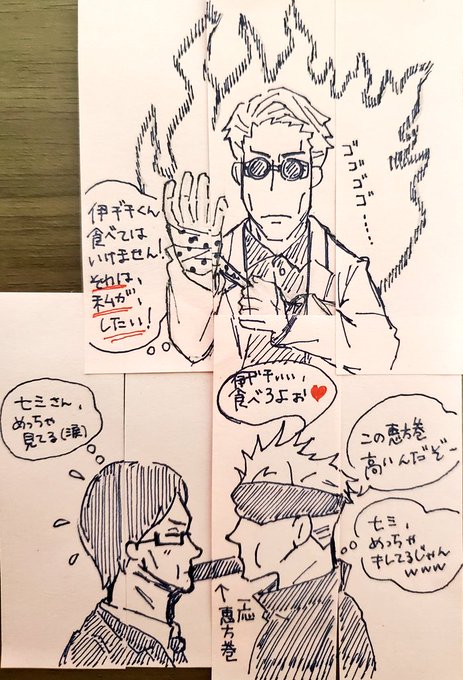 ゴゴゴゴ……
伊ヂチくん
食べては
いけません!
それは、
私が、
したい!
伊ヂチぃぃ、
食べろよぉ♥
この恵方巻
高いんだぞー
七ミさん、
めっちゃ
見てる(涙)
七ミ、
めっちゃ
キレてるじゃん
www
↑一応
恵方巻